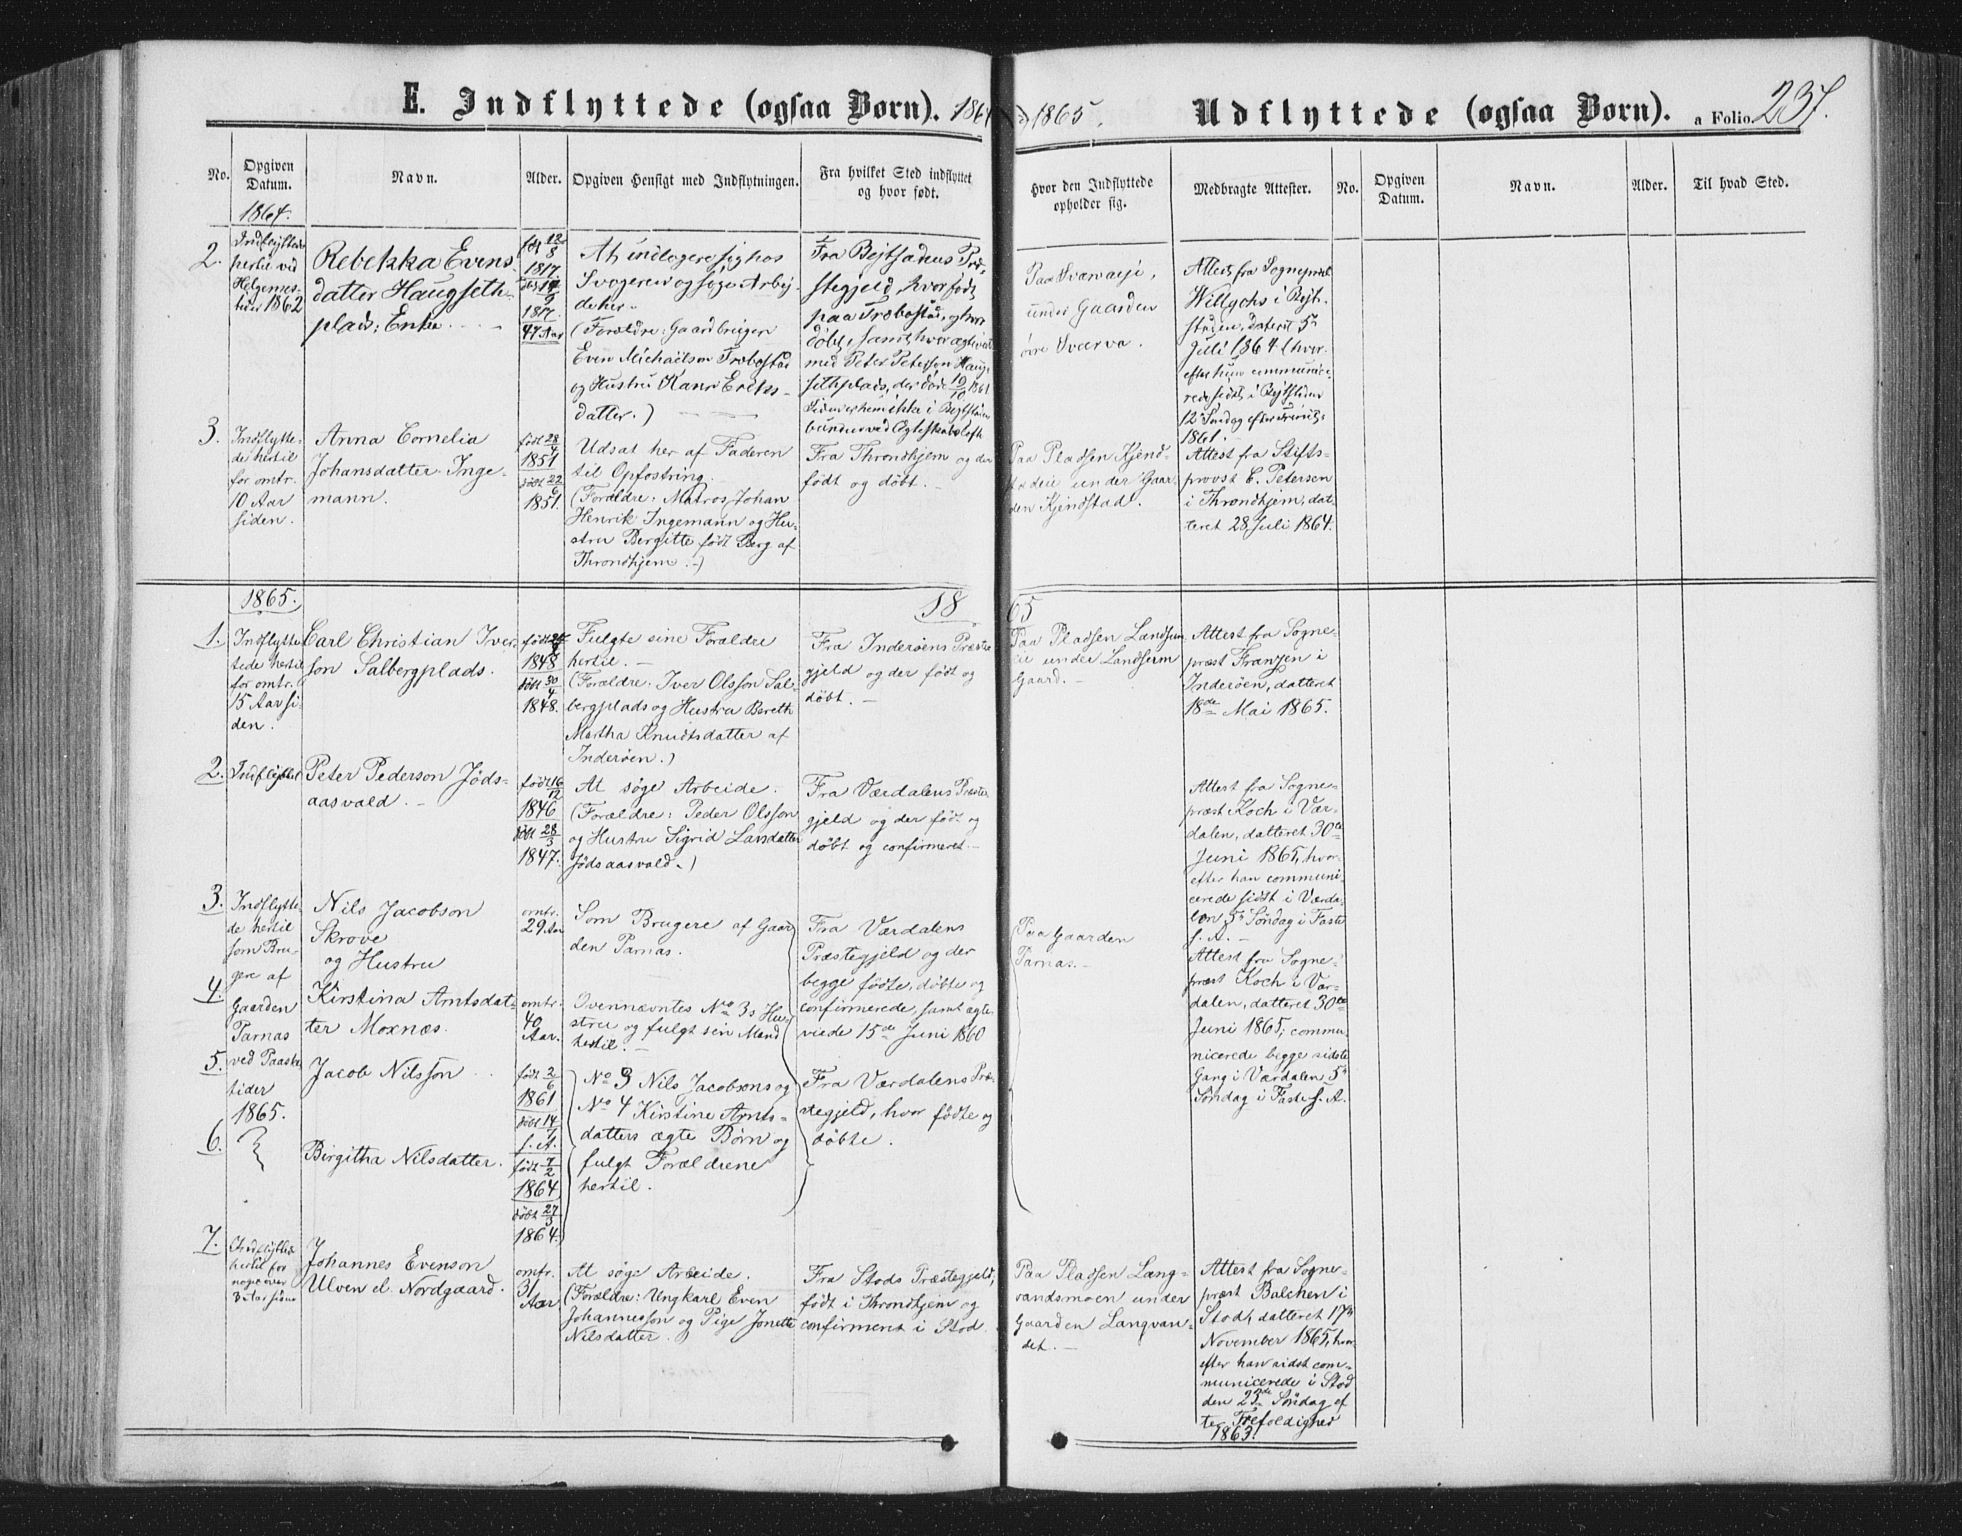 E. Indflyttede (ogsaa Børn). 1864 1865.
Udflyttede (ogsaa Børn). a Folio. 237.
No.
Opgiven Datum.
Navn.
Alder.
Opgiven Hensigt med Indflytningen.
Fra hvilket Sted indflyttet
og hvor født.
Hvor den Indflyttede
opholder sig.
Medbragte Attester.
No.
Opgiven
Datum.
Navn.
Alder.
Til hvad Sted.
1864.
2.
Indflyttede
hertil ved
Helgemes-
tider 1862
Rebekka Evens
datter Haugseth-
plads, Enke.
født 12/8
1817.
døbt 14/9
1817.
47 Aar
At indlogere sig hos
Svogeren og søge Arbej-
de her.
(Forældre: Gaardbruger
Even Michaelson Træbostad
og Hustru Karn Eriks-
datter.)
Fra Bejtstadens Præ-
stegjeld, hvor født
paa Træbostad, og hvor
døbt, samt hvor ægteviet
med Peter Peterson Haug-
sethplads, der døde 19/10 1861
Siden er hun ikke i Bejtstaden
bunden ved Ægteskabsløfte
Paa Sværvaeje,
under Gaarden
øvre Sværva.
Attest fra Sognepræst
Willgohs i Bejt-
staden, dateret 5te
Juli 1864 (hvor-
efter hun communice-
rede sidst i Bejtstaden
12te Søndag efter Trinit:
1861.
3.
Indflytte-
de hertil
for omtr.
10 Aar
siden.
Anna Cornelia
Johansdatter Inge-
mann.
født 28/4
1851
døbt 22/6
1851.
Udsat her af Faderen
til Opfostring.
(Forældre: Matros Johan
Henrik Ingemann og Hu-
stru Bergitte født Berg af
Throndhjem.-)
Fra Throndhjem og der
født og døbt.-
Paa Pladsen Kjend-
stadeie under Gaar
den Kjendstad.
Attest fra Stifts-
provst C. Petersen
i Throndhjem, dat-
teret 28 Juli 1864.
1865.
1865
1.
Indflytte
tede hertil
for omtr.
15 Aar si-
den.
Carl Christian Iver
son Salbergplads.
1848
døbt 30/4
1848.
Fulgte sine Forældre
hertil.-
(Forældre: Iver Olsson Sal-
bergplads og Hustru Bereth
Martha Knudtsdatter af
Inderøen.)
Fra Inderøens Præste
gjeld og der født og
døbt.-
Paa Pladsen Landsem
eie under Landsem
Gaard.-
Attest fra Sogne-
præst Franzen i
Inderøen, datteret
18de Mai 1865.
2.
Indflyttet
Peter Pederson Jøds-
aasvald.-
født 16/12
1846
døbt 28/3
1847.
At søge Arbeide.
(Forældre: Peder Olsson
og Hustru Sigrid Larsdatter
Jødsaasvald.-)
Fra Værdalens Præste-
gjeld og der født og
døbt og confirmeret.-
Attest fra Sogne-
præst Koch i Vær-
dalen, datteret 30te
Juni 1865, hvor-
efter han communi-
cerede sidst i Værda-
len 5te Søndag i Faste
s. A.-
3.
Indflytte-
de hertil
som Bru-
gere af
Gaarden
Parnas
ved Paaske
tider
1865.
Nils Jacobson
Skrove
og Hustru
omtr.
29 Aar
Som Brugere af Gaar
den Parnas.
Fra Værdalens
Præstegjeld og der
begge fødte, døbte og
confirmerede, samt ægte-
viede 15de Juni 1860
Paa Gaarden
Parnas.-
Attest fra Sogne-
præst Koch i Vær-
dalen, datteret 30te
Juni 1865, commu-
nicerede begge sidste
Gang i Værdalen 5te
Søndag i Faste s. A.
4.
Kirstina Arntsdat-
ter Moxnæs.
omtr.
40
Aar.
Ovennævntes No 3s Hu-
stru og fulgt sin Mand
hertil.-
5.
Jacob Nilsson
født 2/6
1861
døbt 14/7
s. A.
No 3 Nils Jacobsons og
No 4 Kirstine Arnts-
datters ægte Børn og
fulgt Forældrene
hertil.
Fra Værdalens Præ-
stegjeld, hvor fødte og
døbte.
6.
Birgitha Nilsdatter.
født 7/2
1864
døbt 27/3
1864.
7.
Indflyttede
hertil for
noget over
3 Aar siden
Johannes Evenson
Ulven el. Nordgaard.
omtr.
31
Aar
At søge Arbeide.
(Forældre: Ungkarl Even
Johannesson og Pige Jonette
Nilsdatter.
Fra Stods Præstegjeld,
født i Throndhjem og
confirmeret i Stod.
Paa Pladsen Lang-
vandsmoen under
Gaarden Langvan-
det.-
Attest fra Sogne-
præst Balchen i
Stod, datteret 17de
November 1865, hvor-
efter han sidst com-
municerede i Stod
den 23de Søndag ef
ter Trefoldighed
1863.